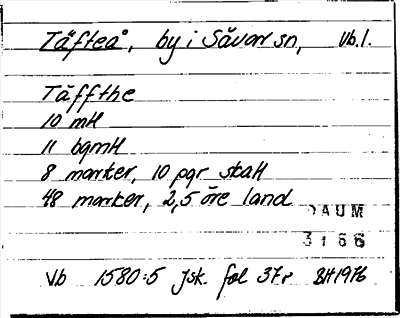 Täfteå, by i Sävar sn, Vb.l.
Täffthe
10 mtl
11 bgmtl
8 marker, 10 pgr skatt
48 marker, 2,5 öre land
DAUM
3166
Vb 1580:5 Jsk. fol 37r BH 1976